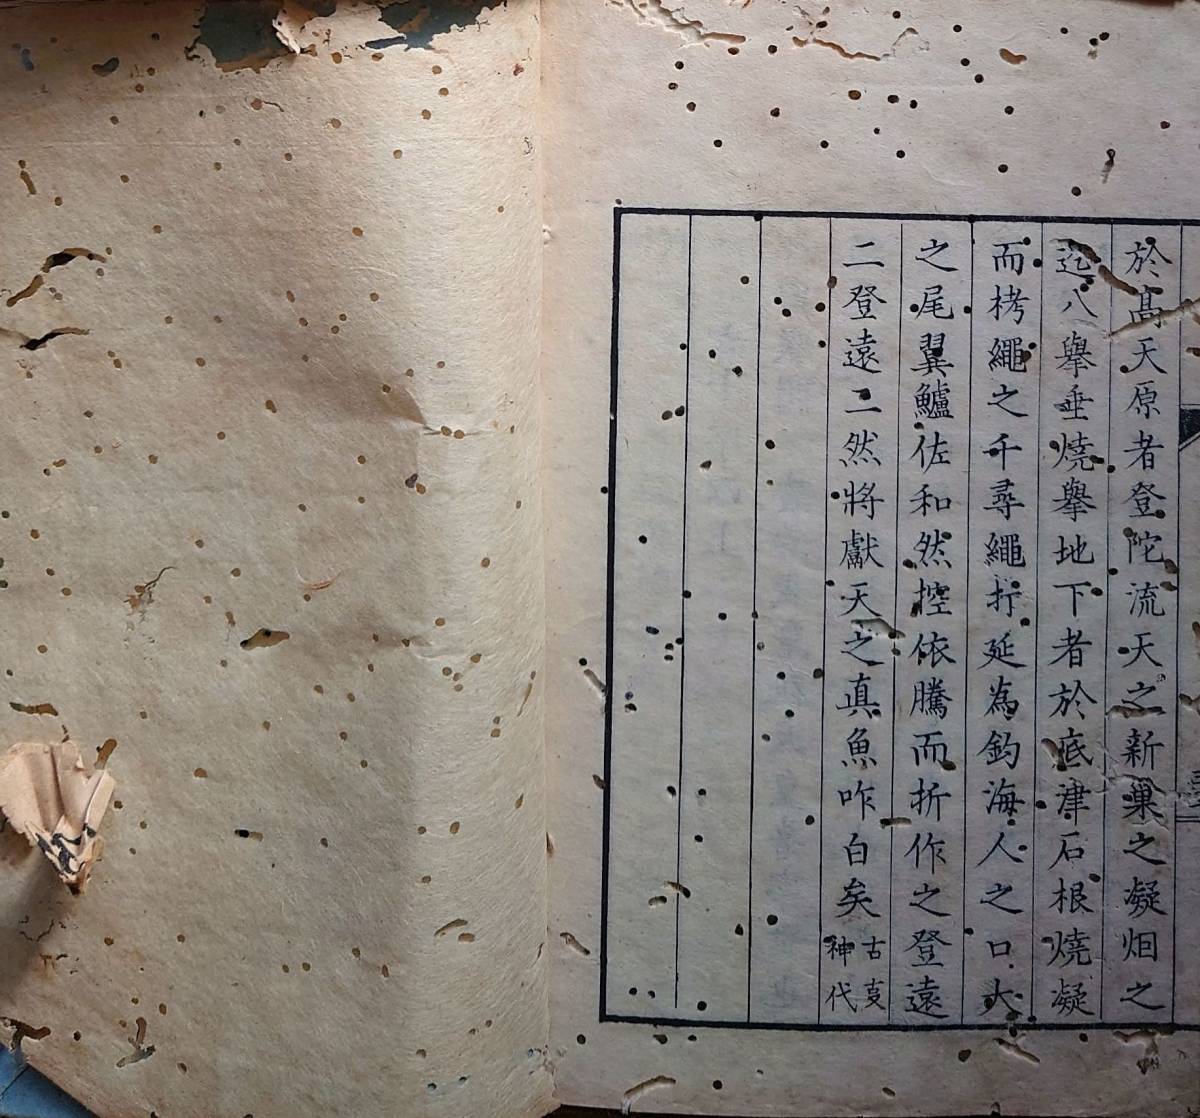 於高天原者登陀流天之新巢之凝烟之
迄八擧垂燒擧地下者於底津石根燒凝
而栲繩之千尋繩折延為釣海人之口大
之尾翼鱸佐和然控依騰而折作之登遠
二登遠二然將獻天之真魚咋白矣古支
神代